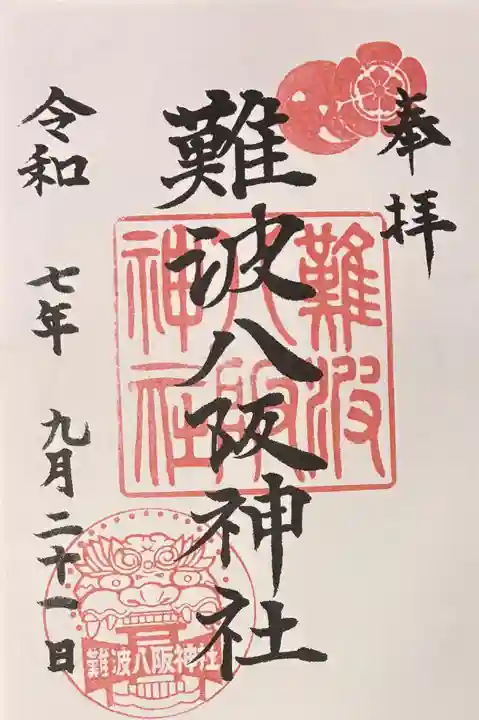 奉拝
難波八阪神社
難波八阪神社
令和 七年 九月 二十一日
難波八阪神社